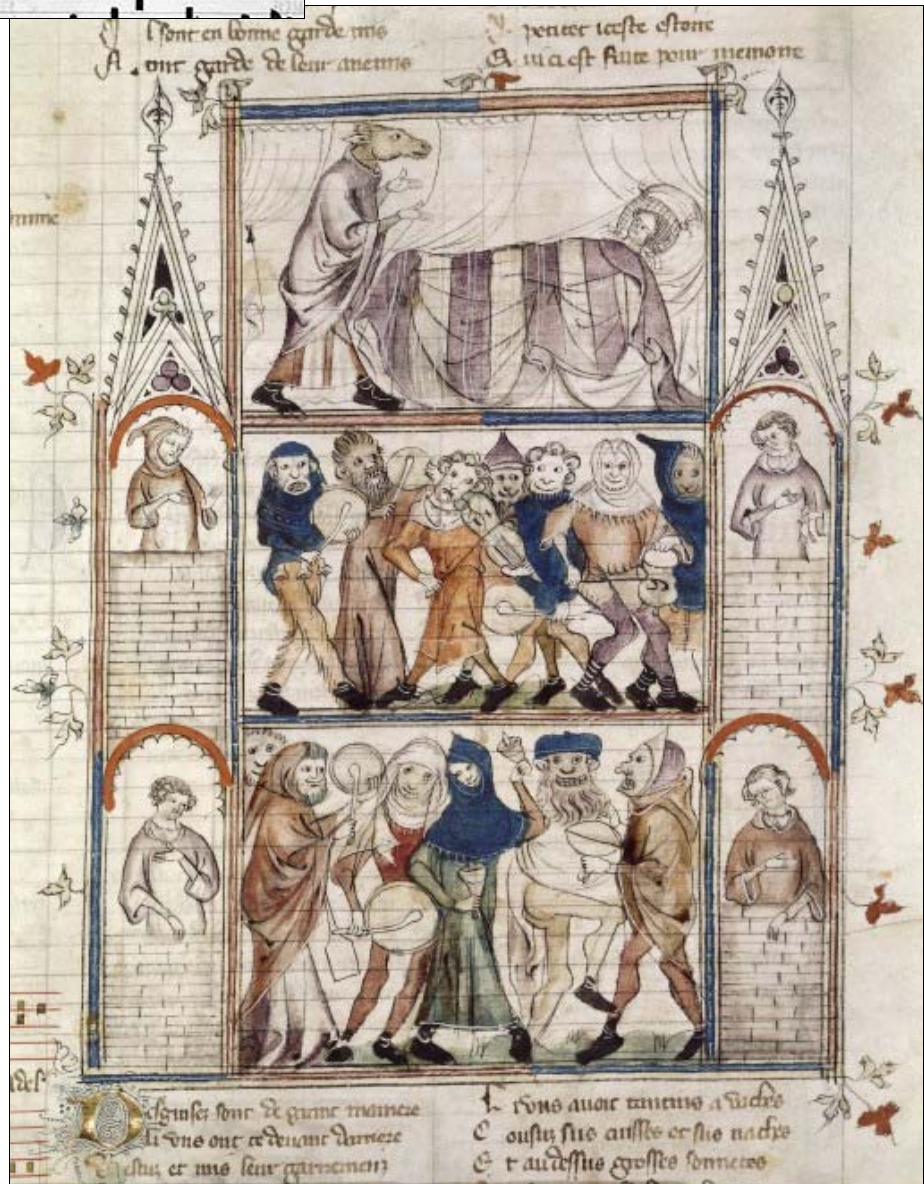 l sont en bonne garde mis
ont garde de leur anemis
petitet iceste estoire
Q ui ci est faite pour memoire
D esguisez sont de grant maniere
Li uns ont ce devant darriere
estuz et mis leur garnemenz
L 'uns avoit tantins a vaches
C ousuz sus cuisses et sus naches
E t au dessus grosses sonnetes